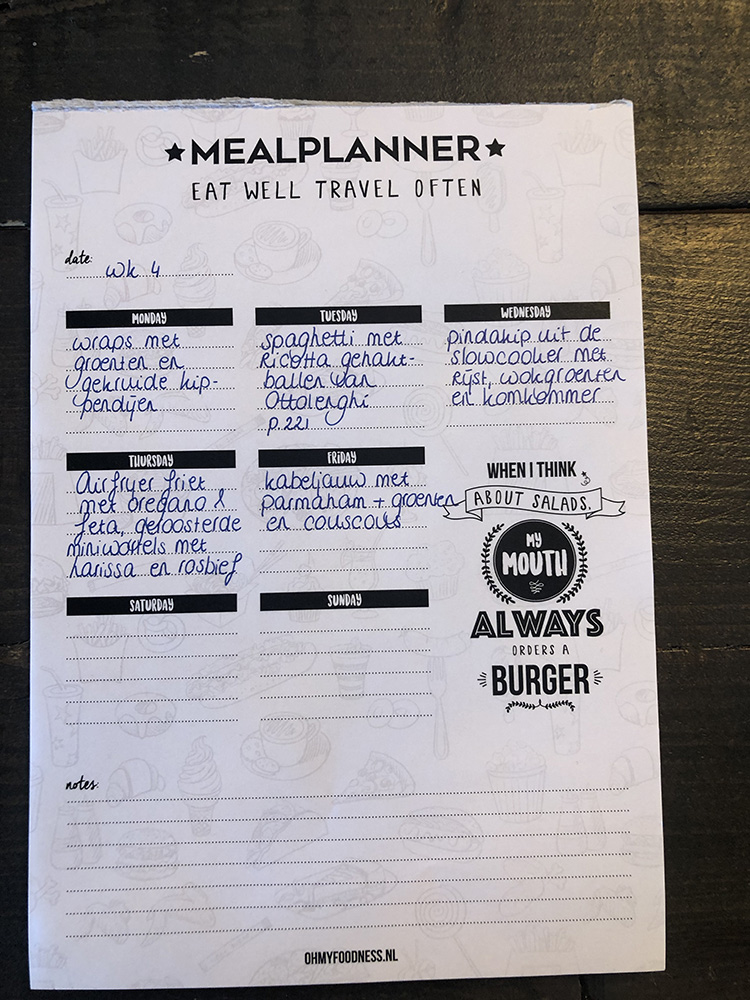 ★MEALPLANNER★
EAT WELL TRAVEL OFTEN
date: wk 4
MONDAY
wraps met
groenten en
gekruide kip-
pendijen
TUESDAY
spaghetti met
Ricotta gehakt-
ballen van
Ottolenghi
p.221
WEDNESDAY
pindakip uit de
slowcooker met
rijst, wokgroenten
en komkommer
THURSDAY
Airfryer friet
met oregano &
feta, geroosterde
miniwortels met
harissa en rosbief
FRIDAY
kabeljauw met
parmaham + groenten
en couscous
WHEN I THINK
ABOUT SALADS,
MY
MOUTH
ALWAYS
ORDERS A
BURGER
SATURDAY
SUNDAY
notes:
OHMYFOODNESS.NL